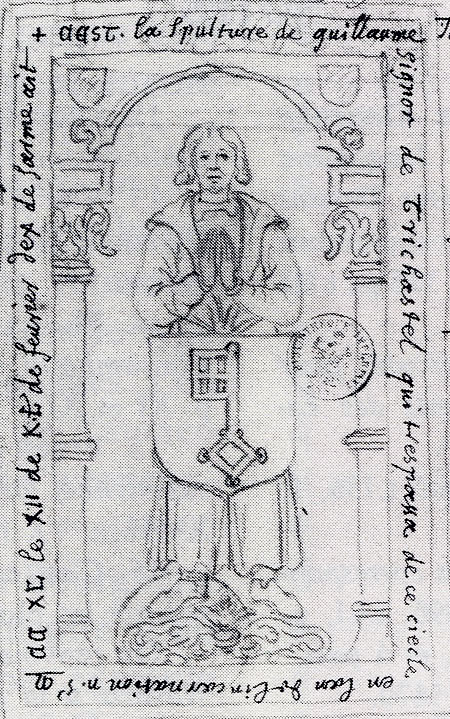 + aqst. la Spulture de guillaume
Signor de trichastel qui trespassa de ce ciecle
en lan de lincarnation n. s.
le XII de de feurier dex de sarme ait